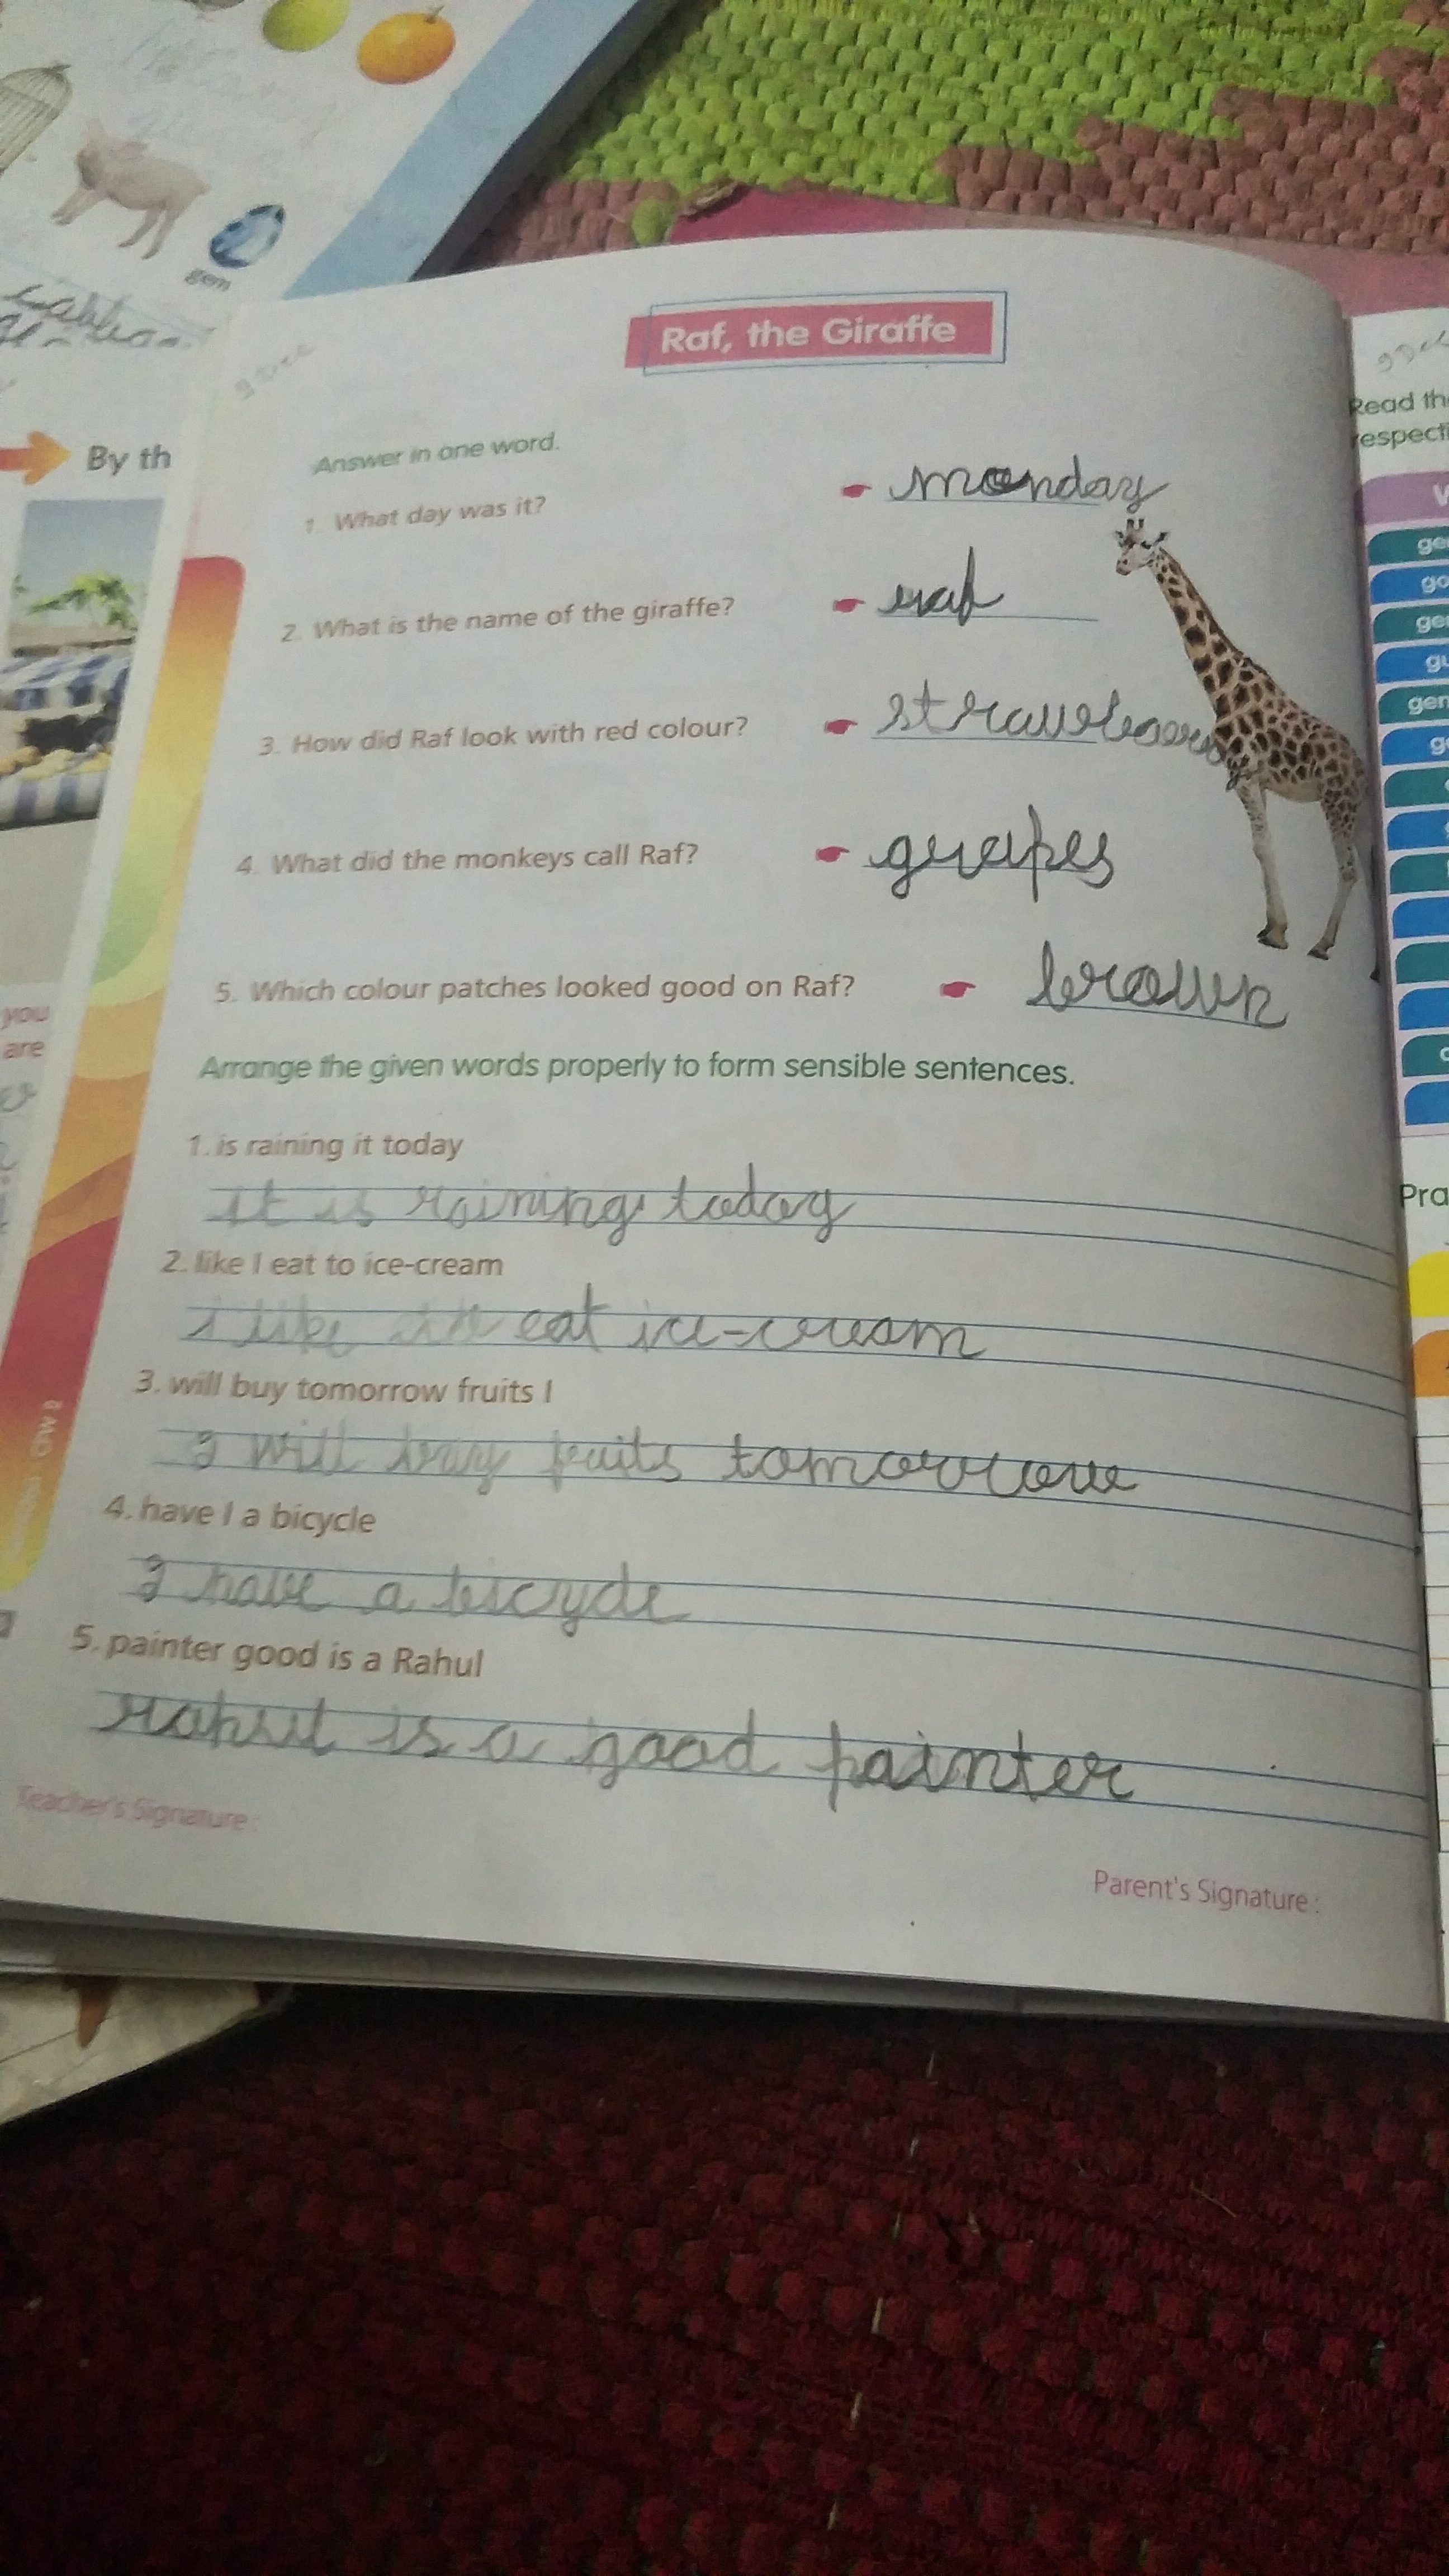 gem
Raf, the Giraffe
9 Dec
9 Dec
Answer in one word.
1. What day was it?
monday
2. What is the name of the giraffe?
raf
3. How did Raf look with red colour?
4. What did the monkeys call Raf?
grapes
5. Which colour patches looked good on Raf?
brown
Arrange the given words properly to form sensible sentences.
1. is raining it today
it is raining today
2. like I eat to ice-cream
i like to eat ice-cream
3. will buy tomorrow fruits I
I will buy fruits tomorrow
4. have I a bicycle
I have a bicycle
5. painter good is a Rahul
rahul is a good painter
Teacher's Signature :
Parent's Signature :
By th
you
are
Read th
respecti
Pra